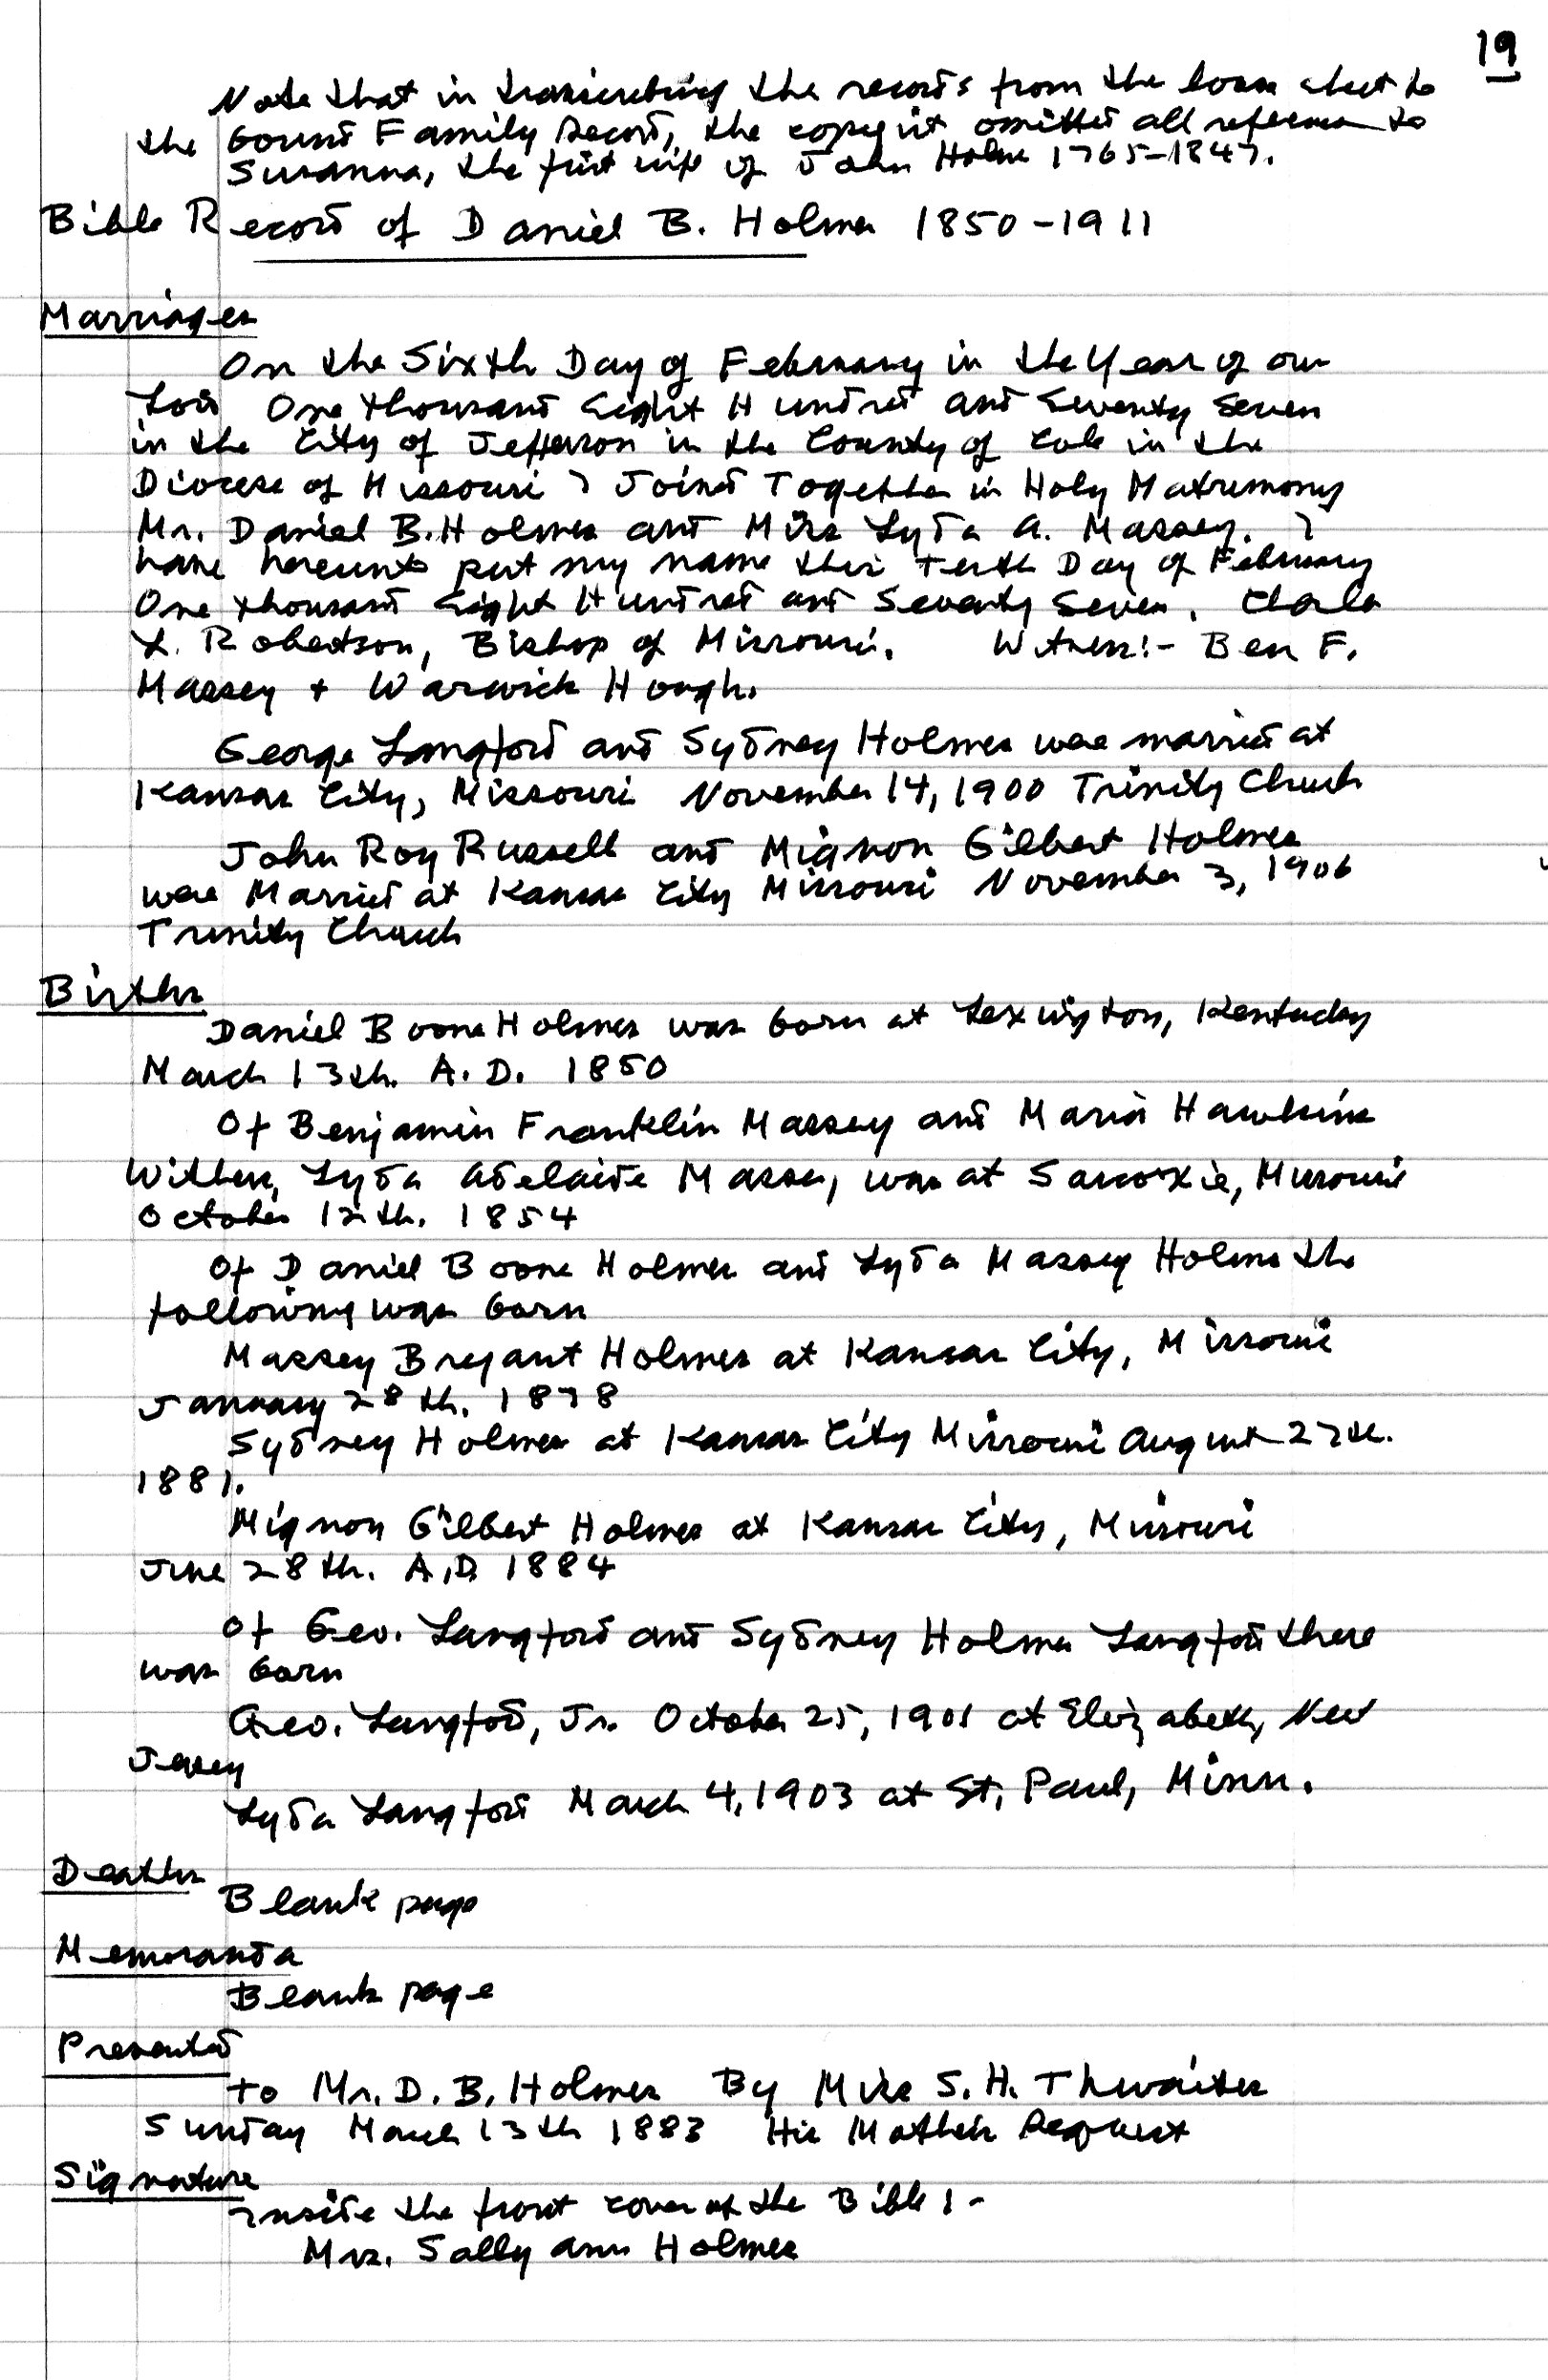 19
Note that in transcribing the records from the loose sheet to
the bound Family Record, the copyist omitted all reference to
Susanna, the first wife of John Holmes 1765-1847.
Bible Record of Daniel B. Holmes 1850-1911
Marriages
On the Sixth Day of February in the Year of our
Lord One thousand Eight Hundred and Seventy Seven
in the City of Jefferson in the County of Cole in the
Diocese of Missouri I Joined Together in Holy Matremony
Mr. Daniel B. Holmes and Miss Lyda A. Massey. I
have hereunto put my name this Tenth Day of February
One thousand Eight Hundred and Seventy Seven. Charles
F. Robertson, Bishop of Missouri. Witness:- Ben F.
Massey + Warwick Hough.
George Langford and Sydney Holmes were married at
Kansas City, Missouri November 14, 1900 Trinity Church
John Roy Russell and Mignon Gilbert Holmes
were Married at Kansas City Missouri November 3, 1906
Trinity Church
Births
Daniel Boone Holmes was born at Lexington, Kentucky
March 13th. A.D. 1850
Of Benjamin Franklin Massey and Maria Hawkins
Withers, Lyda Adelaide Massey, was at Sarcoxie, Missouri
October 12th. 1854
Of Daniel Boone Holmes and Lyda Massey Holmes the
following was born
Massey Bryant Holmes at Kansas City, Missouri
January 28th. 1878
Sydney Holmes at Kansas City Missouri August 27th.
1881.
Mignon Gilbert Holmes at Kansas City, Missouri
June 28th. A.D. 1884
Of Geo. Langford and Sydney Holmes Langford there
was born
Geo. Langford, Jr. October 25, 1901 at Elizabeth, New
Jersey
Lyda Langford March 4, 1903 at St. Paul, Minn.
Deaths
Blank page
Memoranda
Blank page
Presented
To Mr. D. B. Holmes By Miss S. H. Thwaites
Sunday March 13th 1883 His Mother's Request
Signature
Inside the front cover of the Bible:-
Mrs. Sally Ann Holmes